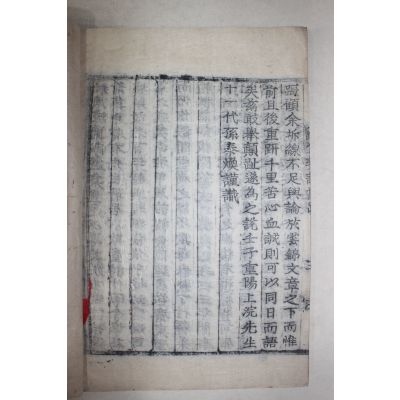 顧余拆線不足與論於雲錦文章之下而惟
前且後重硏千里苦心血誠則可以同日而語
矣玆敢擧顚趾遂爲之說壬子重陽上浣先生
十一代孫泰煥謹識